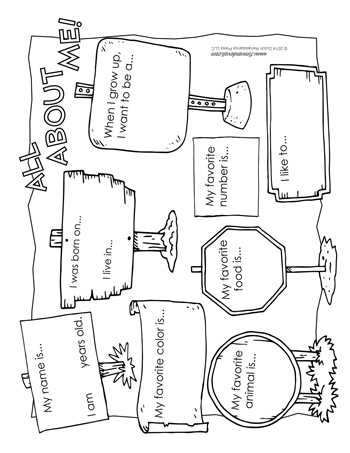 ALL
ABOUT
ME!
My name is...
I am        years old.
I was born on...
I live in...
When I grow up,
I want to be a...
My favorite color is...
My favorite
food is...
My favorite
number is...
My favorite
animal is...
I like to...
© 2014 Dutch Renaissance Press LLC
www.timvandevall.com